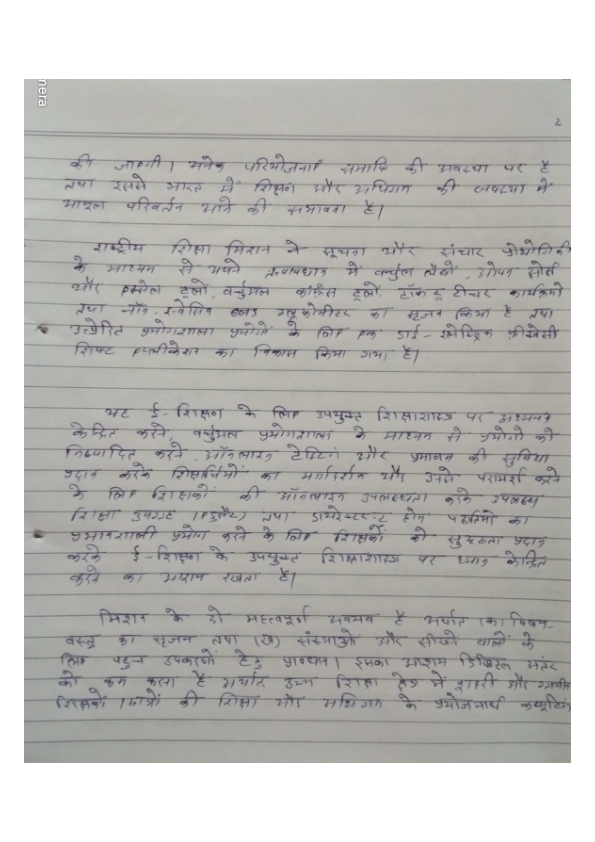 mera
2
की जाएगी। अनेक परियोजनाएं समाप्ति की अवस्था पर है
तथा इससे भारत में शिक्षण और अधिगम की व्यवस्था में
आमूल परिवर्तन आने की संभावना है।
राष्ट्रीय शिक्षा मिशन ने सूचना और संचार प्रोद्योगिकी
के माध्यम से अपने तत्वाधान में वर्चुअल लैबों, ओपन सोर्स
और एक्सेस टूलों, वर्चुअल कांफ्रेंस टूलों, टॉक टू टीचर कार्यक्रमों
तथा नॉन-इन्वेसिव ब्लड ग्लूकोमीटर का सृजन किया है तथा
प्रयोगशाला प्रयोगों के लिए एक डाई-इलेक्ट्रिक फ्रीक्वेंसी
शिफ्ट एप्लीकेशन का विकास किया गया है।
यह ई-शिक्षण के लिए उपयुक्त शिक्षाशास्त्र पर अध्ययन
केन्द्रित करने, वर्चुअल प्रयोगशाला के माध्यम से प्रयोगों को
निष्पादित करने, ऑनलाइन टेस्टिंग और प्रमाणन की सुविधा
प्रदान करके शिक्षार्थियों का मार्गदर्शन और उनसे परामर्श करने
के लिए शिक्षकों की ऑनलाइन उपलब्धता करके उपलब्ध
शिक्षा उपग्रह (एडुसैट) तथा डायरेक्ट-टू होम पद्धतियों का
प्रभावशाली प्रयोग करने के लिए शिक्षकों को सुदृढ़ता प्रदान
करके ई-शिक्षण के उपयुक्त शिक्षाशास्त्र पर ध्यान केन्द्रित
करने का आशय रखता है।
मिशन के दो महत्वपूर्ण अवयव है अर्थात (क) विषय-
वस्तु का सृजन तथा (ख) संस्थाओं और सीखने वालों के
लिए पहुंच उपकरणों हेतु प्रावधान। इसका आशय डिजिटल अंतर
को कम करना है अर्थात उच्च शिक्षा क्षेत्र में शहरी और ग्रामीण
शिक्षकों/छात्रों की शिक्षा और अधिगम के प्रयोजनार्थ कम्प्यूटिंग